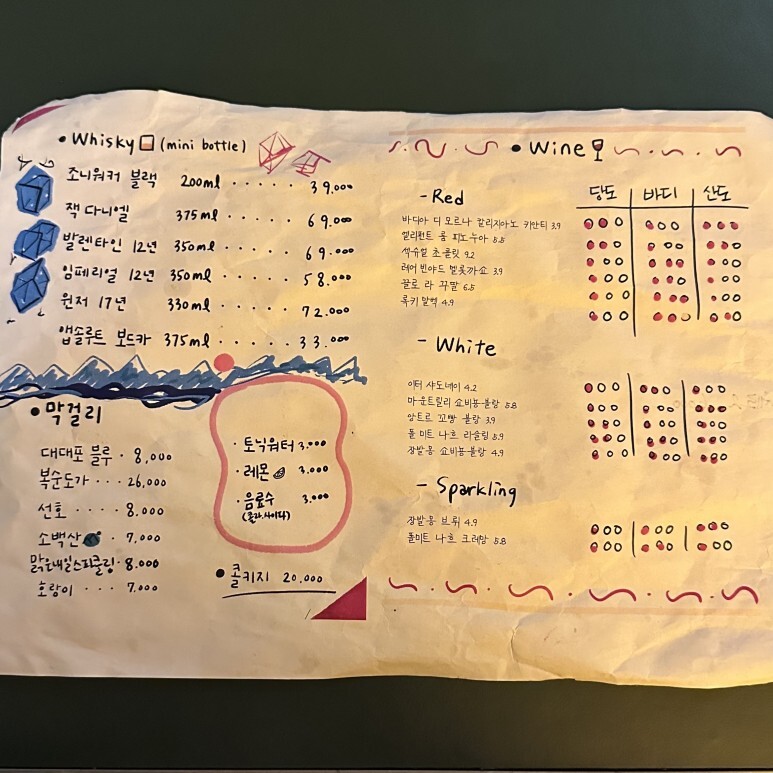 • Whisky (mini bottle)
조니워커 블랙 200ml ····· 39.000
잭 다니엘 375ml ····· 69.000
발렌타인 12년 350ml ···· 69.000
임페리얼 12년 350ml ···· 58.000
윈저 17년 330ml ····· 72.000
앱솔루트 보드카 375ml ····· 33.000
• 막걸리
대대포 블루 · 8,000
복순도가 ··· 26,000
선호 ···· 8.000
소백산 · 7.000
맑은내일스파클링· 8.000
호랑이 ···· 7.000
· 토닉워터 3.000
· 레몬 3.000
· 음료수 3.000
(콜라.사이다)
• 콜키지 20.000
• Wine
당도 바디 산도
- Red
바디아 디 모르나 칼리지아노 키안티 3.9
엘리펀트 룸 피노누아 5.5
섹슈얼 초콜릿 9.2
레어 빈야드 말벡 까쇼 3.9
끌로 라 꾸딸 6.5
록키 말벡 4.9
- White
이터 샤도네이 4.2
마운트릴리 쇼비뇽블랑 5.8
앙트르 꼬빵 블랑 3.9
돌미트 나흐 리슬링 5.9
장발몽 쇼비뇽블랑 4.9
- Sparkling
장발몽 브뤼 4.9
돌미트 나흐 크레망 5.8